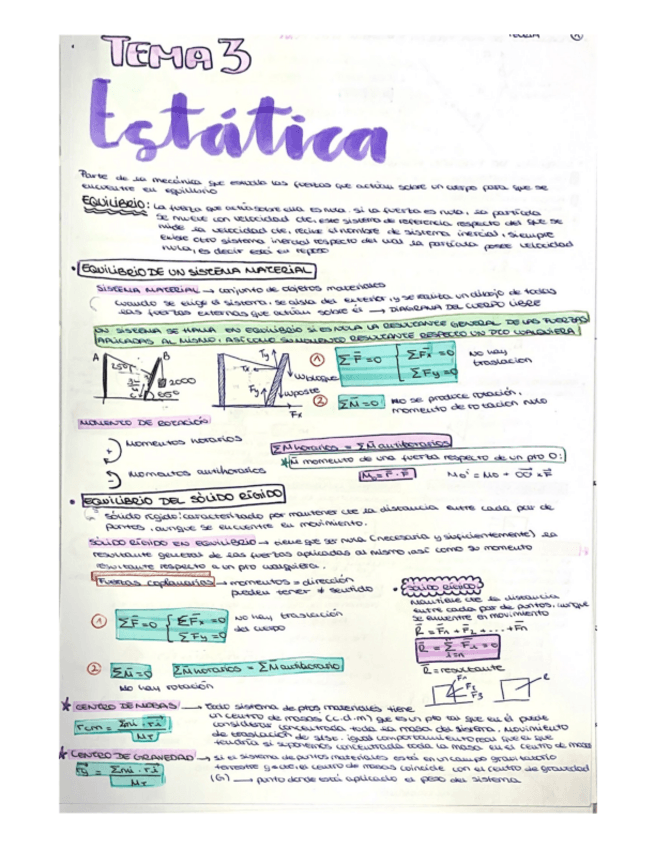 TEORÍA
TEMA 3
Estática
Parte de la mecánica que estudia las fuerzas que actúan sobre un cuerpo para que se
encuentre en equilibrio
EQUILIBRIO: La fuerza que actúa sobre ella es nula. si la fuerza es nula, la partícula
se mueve con velocidad cte, ese sistema de referencia respecto del que se
mide la velocidad cte, recibe el nombre de sistema inercial, siempre
existe otro sistema inercial respecto del cual la partícula posee velocidad
nula, es decir está en reposo
• EQUILIBRIO DE UN SISTEMA MATERIAL
SISTEMA MATERIAL → conjunto de objetos materiales
cuando se elige el sistema, se aísla del exterior, y se realiza un dibujo de todas
las fuerzas externas que actúan sobre él → DIAGRAMA DEL CUERPO LIBRE
UN SISTEMA SE HALLA EN EQUILIBRIO SI ES NULA LA RESULTANTE GENERAL DE LAS FUERZAS
APLICADAS AL MISMO, ASÍ COMO SU MOMENTO RESULTANTE RESPECTO UN PTO CUALQUIERA
A B
C
Ty
Tx
Fy
Fx
wbloque
wposte
① ΣF⃗ = 0 { ΣF⃗x = 0
ΣFy = 0
No hay
traslación
② ΣM⃗ = 0 No se produce rotación,
momento de rotación nulo
MOMENTO DE ROTACIÓN
Momentos horarios
+
Momentos antihorarios
ΣMhorarios = ΣMantihorarios
* M⃗ momento de una fuerza respecto de un pto O:
M₀ = r⃗ · F⃗ M₀' = M₀ + OO⃗' × F⃗
• EQUILIBRIO DEL SÓLIDO RÍGIDO
Sólido rígido: caracterizado por mantener cte la distancia entre cada par de
puntos, aunque se encuentre en movimiento.
SÓLIDO RÍGIDO EN EQUILIBRIO → tiene que ser nula (necesaria y suficientemente) la
resultante general de las fuerzas aplicadas al mismo, así como su momento
resultante respecto a un pto cualquiera.
Fuerzas coplanarias → momentos = dirección
pueden tener ≠ sentido
① ΣF⃗ = 0 { ΣF⃗x = 0
ΣFy = 0
No hay traslación
del cuerpo
② ΣM⃗ = 0 ΣMhorarios = ΣMantihorario
No hay rotación
• SÓLIDO RÍGIDO
Mantiene cte la distancia
entre cada par de puntos, aunque
se encuentre en movimiento
R⃗ = F⃗1 + F⃗2 + ... + F⃗n
R⃗ = Σ F⃗i = 0
R⃗ = resultante
F1
F2
F3
R
* CENTRO DE MASAS → todo sistema de ptos materiales tiene
un centro de masas (c.d.m) que es un pto tal que en él puede
considerar concentrada toda la masa del sistema. Movimiento
de traslación de siste. igual comportamiento real que el que
tendría si suponemos concentrada toda la masa en el centro de masas
rcm = Σmi · r⃗i / MT
* CENTRO DE GRAVEDAD → si el sistema de puntos materiales está en un campo gravitatorio
terrestre g=cte, el centro de masas coincide con el centro de gravedad
(G) → punto donde está aplicado el peso del sistema
r⃗g = Σmi · r⃗i / MT